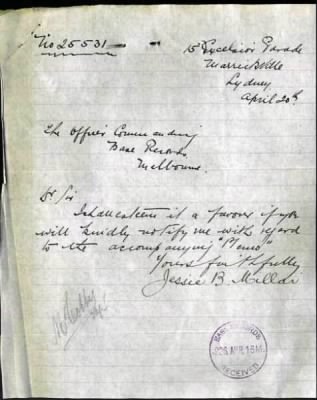 No 25531
15 Excelsior Parade
Marrickville
Sydney
April 20th
The Officer Commanding
Base Records
Melbourne.
Dr Sir
I shall esteem it a favor if you
will kindly notify me with regard
to the accompanying "Memo"
Yours faithfully
Jessie B. Millar
BASE RECORDS
RECEIVED